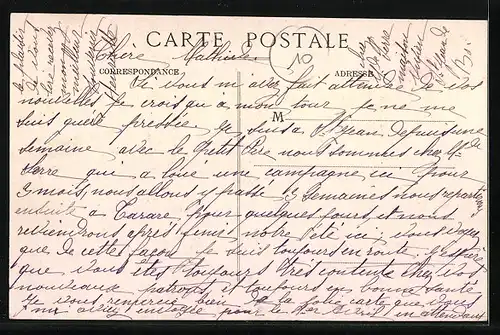 CARTE POSTALE
CORRESPONDANCE
ADRESSE
M
10
Chère Mathilde
Si vous m'avez fait attendre de vos
nouvelles je crois qu'a mon tour je ne me
suis guère pressée je suis a St Jean depuis une
semaine avec le Petit Père nous sommes chez Mr
Serre qui a loué une campagne ici pour
3 mois, nous allons y passé 3 semaines nous repartirons
ensuite a Tarare pour quelques jours et nous
reviendrons après finir notre été ici; vous voyez
que de cette façon je suis toujours en route; j'espère
que vous êtes toujours très contente chez vos
nouveaux patrons et toujours en bonne santé
Je vous remercie bien de la jolie carte que vous
m'avez envoyée pour le 1er Avril en attendant
le plaisir
de vous
lire recevez
mon
meilleur